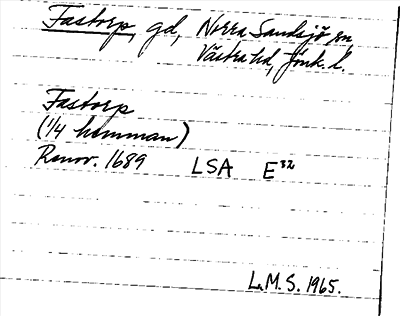 Fastorp, gd, Norra Sandsjö sn,
Västra hd, Jönk. l.
Fastorp
(1/4 hemman)
Renov. 1689 LSA E³²
L.M.S. 1965.